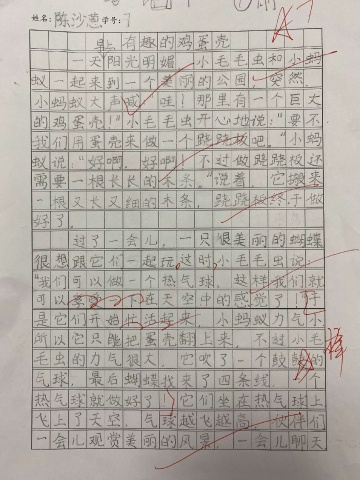 姓名：陈沙葱 学号：7
有趣的鸡蛋壳
一天阳光明媚，小毛毛虫和小蚂
蚁一起来到一个美丽的公园，突然
小蚂蚁大声喊：哇！那里有一个巨大
的鸡蛋壳！"小毛毛虫开心地说："要不
我们用蛋壳来做一个跷跷板吧。"小蚂
蚁说："好啊，好啊！不过做跷跷板还
需要一根长长的木条。"说着，它搬来
一根又长又细的木条，跷跷板终于做
好了。
过了一会儿，一只很美丽的蝴蝶
很想跟它们一起玩，这时小毛毛虫说：
"我们可以做一个热气球，这样我们就
可以 在天空中的感觉了！"于
是它们开始忙活起来，小蚂蚁力气小
所以它只能把蛋壳翻上来，不过小毛
毛虫的力气很大，它吹了一个鼓鼓的
气球，最后蝴蝶找来了四条线，一个
热气球就做好了！它们坐在热气球上
飞上了天空，气球越飞越高，伙伴们
一会儿观赏美丽的风景，一会儿聊天